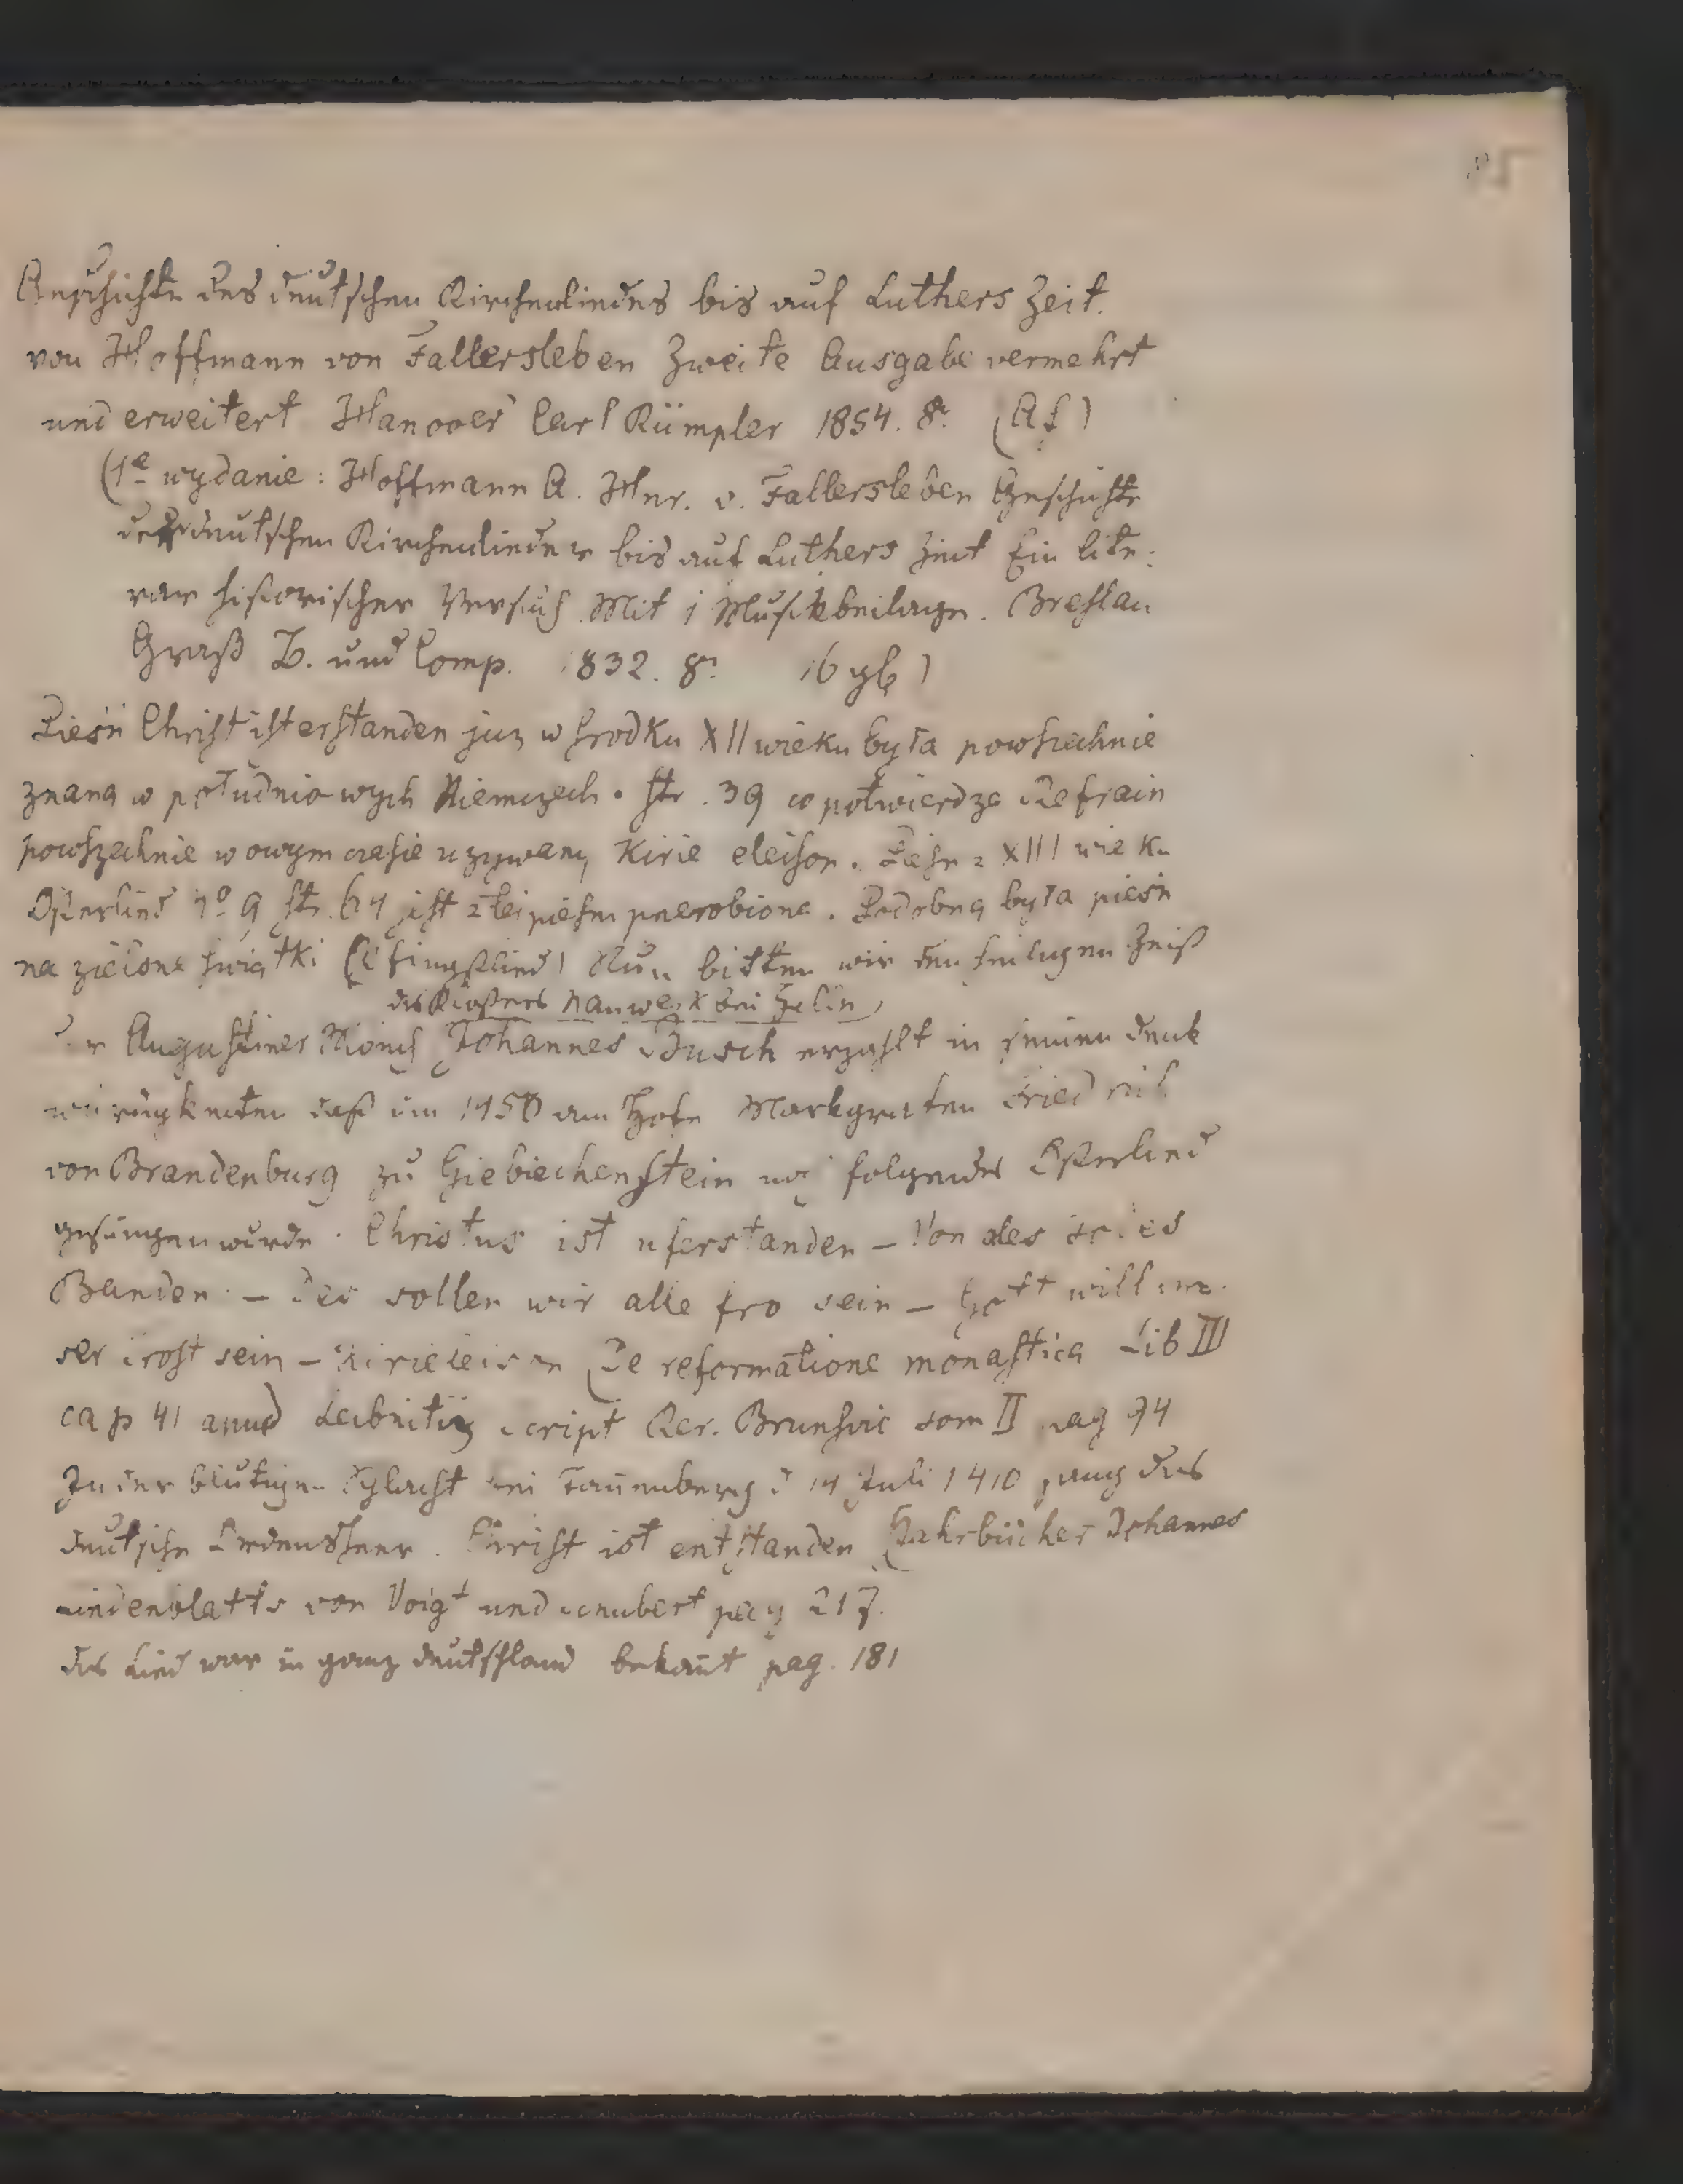 Geschichte des deutschen Kirchenliedes bis auf Luthers Zeit.
von Hoffmann von Fallersleben Zweite Ausgabe vermehrt
und erweitert Hanover Carl Rümpler 1854. 8º
(1e wydanie: Hoffmann A. Hnr. v. Fallersleben Geschichte
der deutschen Kirchenlieder bis auf Luthers Zeit Ein lite:
rar historischer Versuch. Mit 1 Musickbeilage. Breslau
Graß B. und Comp. 1832. 8º
Pieśń Christ ist erstanden juz w srodku XII wieku była powszechnie
znaną w południowych Niemczech. str. 39 co potwierdza Refrain
powszechnie w owym czasie uzywany Kirie eleison. Pieśn z XIII wieku
Osterlied nº 9 str. 64 jest z tej piesni przerobiona. Podobną była pieśń
na zielone swiątki (Pfingstlied) Nun bitten wir den heiligen Geist
des Klosters bei
Der Augustiner Mönch Johannes Busch erzählt in seinen Denk
würdigkeiten daß im 1450 am Hofe Markgrafen Friedrich
von Brandenburg zu Giebichenstein noch folgendes Osterlied
gesungen wurde. Christus ist uferstanden – Von des todes
Banden – Des sollen wir alle fro sein – Gott will un
ser trost sein – Kirieleison (De reformatione monastica Lib III
cap 41 apud Leibnitius script Rer. Brunsvic tom II pag 94
In der blutigen Schlacht bei Tannenberg d 14 Juli 1410 sang das
deutsche Ordensheer. Christ ist entstanden (Jahrbücher Johannes
Lindenblatts von Voigt und Schubert pag 217.
das Lied war in ganz Deutschland bekañt pag. 181